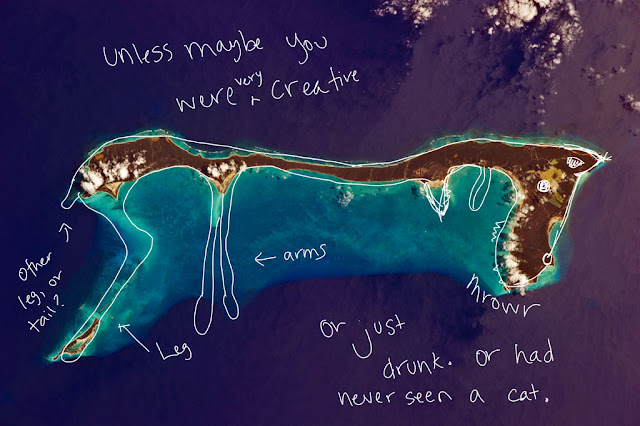 unless maybe you
were very creative
other
leg, or
tail?
← arms
Leg
mrowr
or just
drunk. or had
never seen a cat.